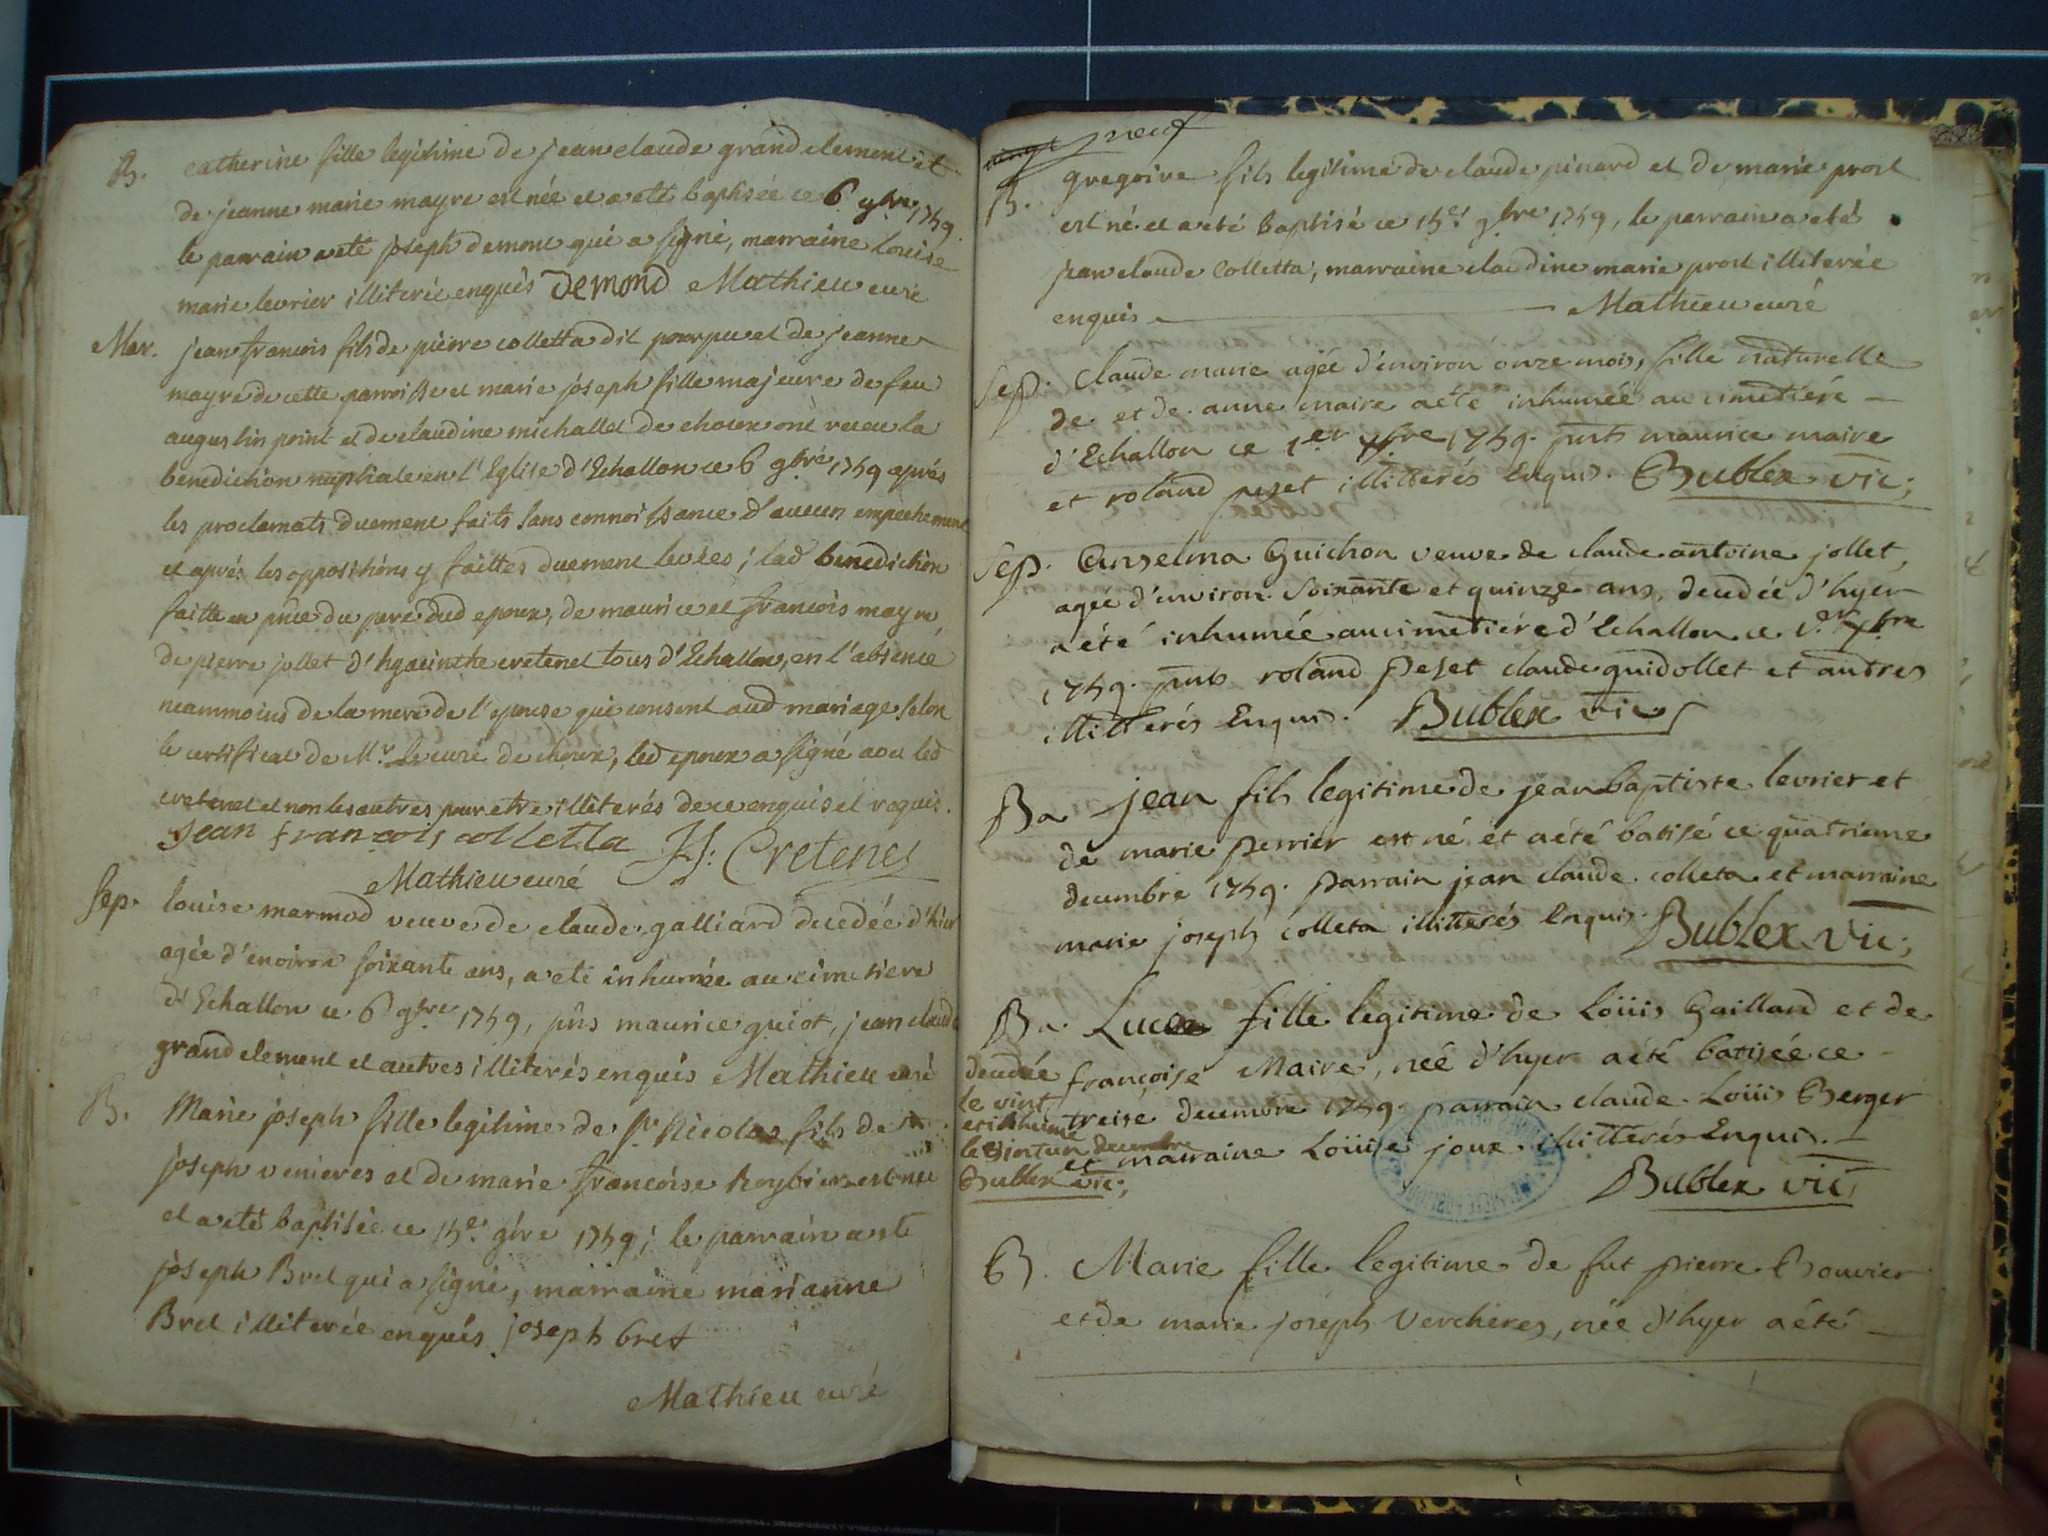 B. catherine fille legitime de jean claude grand clement et
de jeanne marie mayre est née et a eté baptisée ce 6 9bre 1759
le parrain a eté joseph demont qui a signé, marraine Louise
marie levrier illiterée enquis Demond Mathieu curé
Mar. jean francois fils de pierre colletta dit pourpu et de jeanne
mayre de cette parroisse et marie joseph fille majeure de feu
augustin point et de claudine michallet de choux ont receu la
benediction nuptiale en l'Eglise d'Echallon ce 6 9bre 1759 aprés
les proclamats duement faits sans connoissance d'aucun empechement
et aprés les oppositions y faittes duement levées; lad benediction
faitte en pnce du pere dud epoux, de maurice et francois mayre,
de pierre jollet d'hyacinthe cretenet tous d'Echallon, en l'absence
neammoins de la mere de l'epouse qui consent aud mariage selon
le certificat de Mr. le curé de choux, led epoux a signé avec led
cretenet et non les autres pour etre illiterés de ce enquis et requis.
Jean francois colletta JH: Cretenet
Mathieu curé
Sep. louise marmod veuve de claude galliard decedée d'hier
agée d'environ soixante ans, a eté inhumée au cimetiere
d'Echallon ce 6 9bre 1759, pns maurice guiot, jean claude
grand clement et autres illiterés enquis Mathieu curé
B. Marie joseph fille legitime de sr Nicolas fils de
joseph venieres et de marie francoise Reybier est née
et a eté baptisée ce 15e 9bre 1759; le parrain a eté
joseph Bret qui a signé, marraine marianne
Bret illiterée enquis joseph bret
Mathieu curé
vingt neuf
B. gregoire fils legitime de claude pinard et de marie prost
est né et a eté baptisé ce 15e 9bre 1759, le parrain a eté
jean claude Colletta, marraine claudine marie prost illiterée
enquis Mathieu curé
Sep. Claude marie agée d'environ onze mois, fille naturelle
de et de anne maire a été inhumée au cimetiére
d'Echallon ce 1er Xbre 1759. pnts maurice maire
et roland peset illitterés Enquis. Bublex vic;
Sep. Anselma Guichon veuve de claude antoine jollet,
agée d'environ soixante et quinze ans, decedée d'hyer
a été inhumée au cimetiére d'Echallon ce 1.er Xbre
1759. pnts roland Peset claude guidollet et autres
illitterés Enquis. Bublex vic
Ba jean fils legitime de jean baptiste levrier et
de marie perrier est né et a été batisé ce quatrieme
decembre 1759. parrain jean claude colleta et marraine
marie joseph colleta illitterés Enquis. Bublex vic;
Ba. Luce fille legitime de Loüis Gaillard et de
francoise Maire, née d'hyer a été batisée ce
treise decembre 1759. parrain claude Loüis Berger
et marraine Loüise joux illitterés Enquis.
Bublex vic;
decedée
le vint
et inhumée
le vint un decembre
Bublex vic;
B. Marie fille legitime de fut pierre Bouvier
et de marie joseph Vercheres, née d'hyer a été